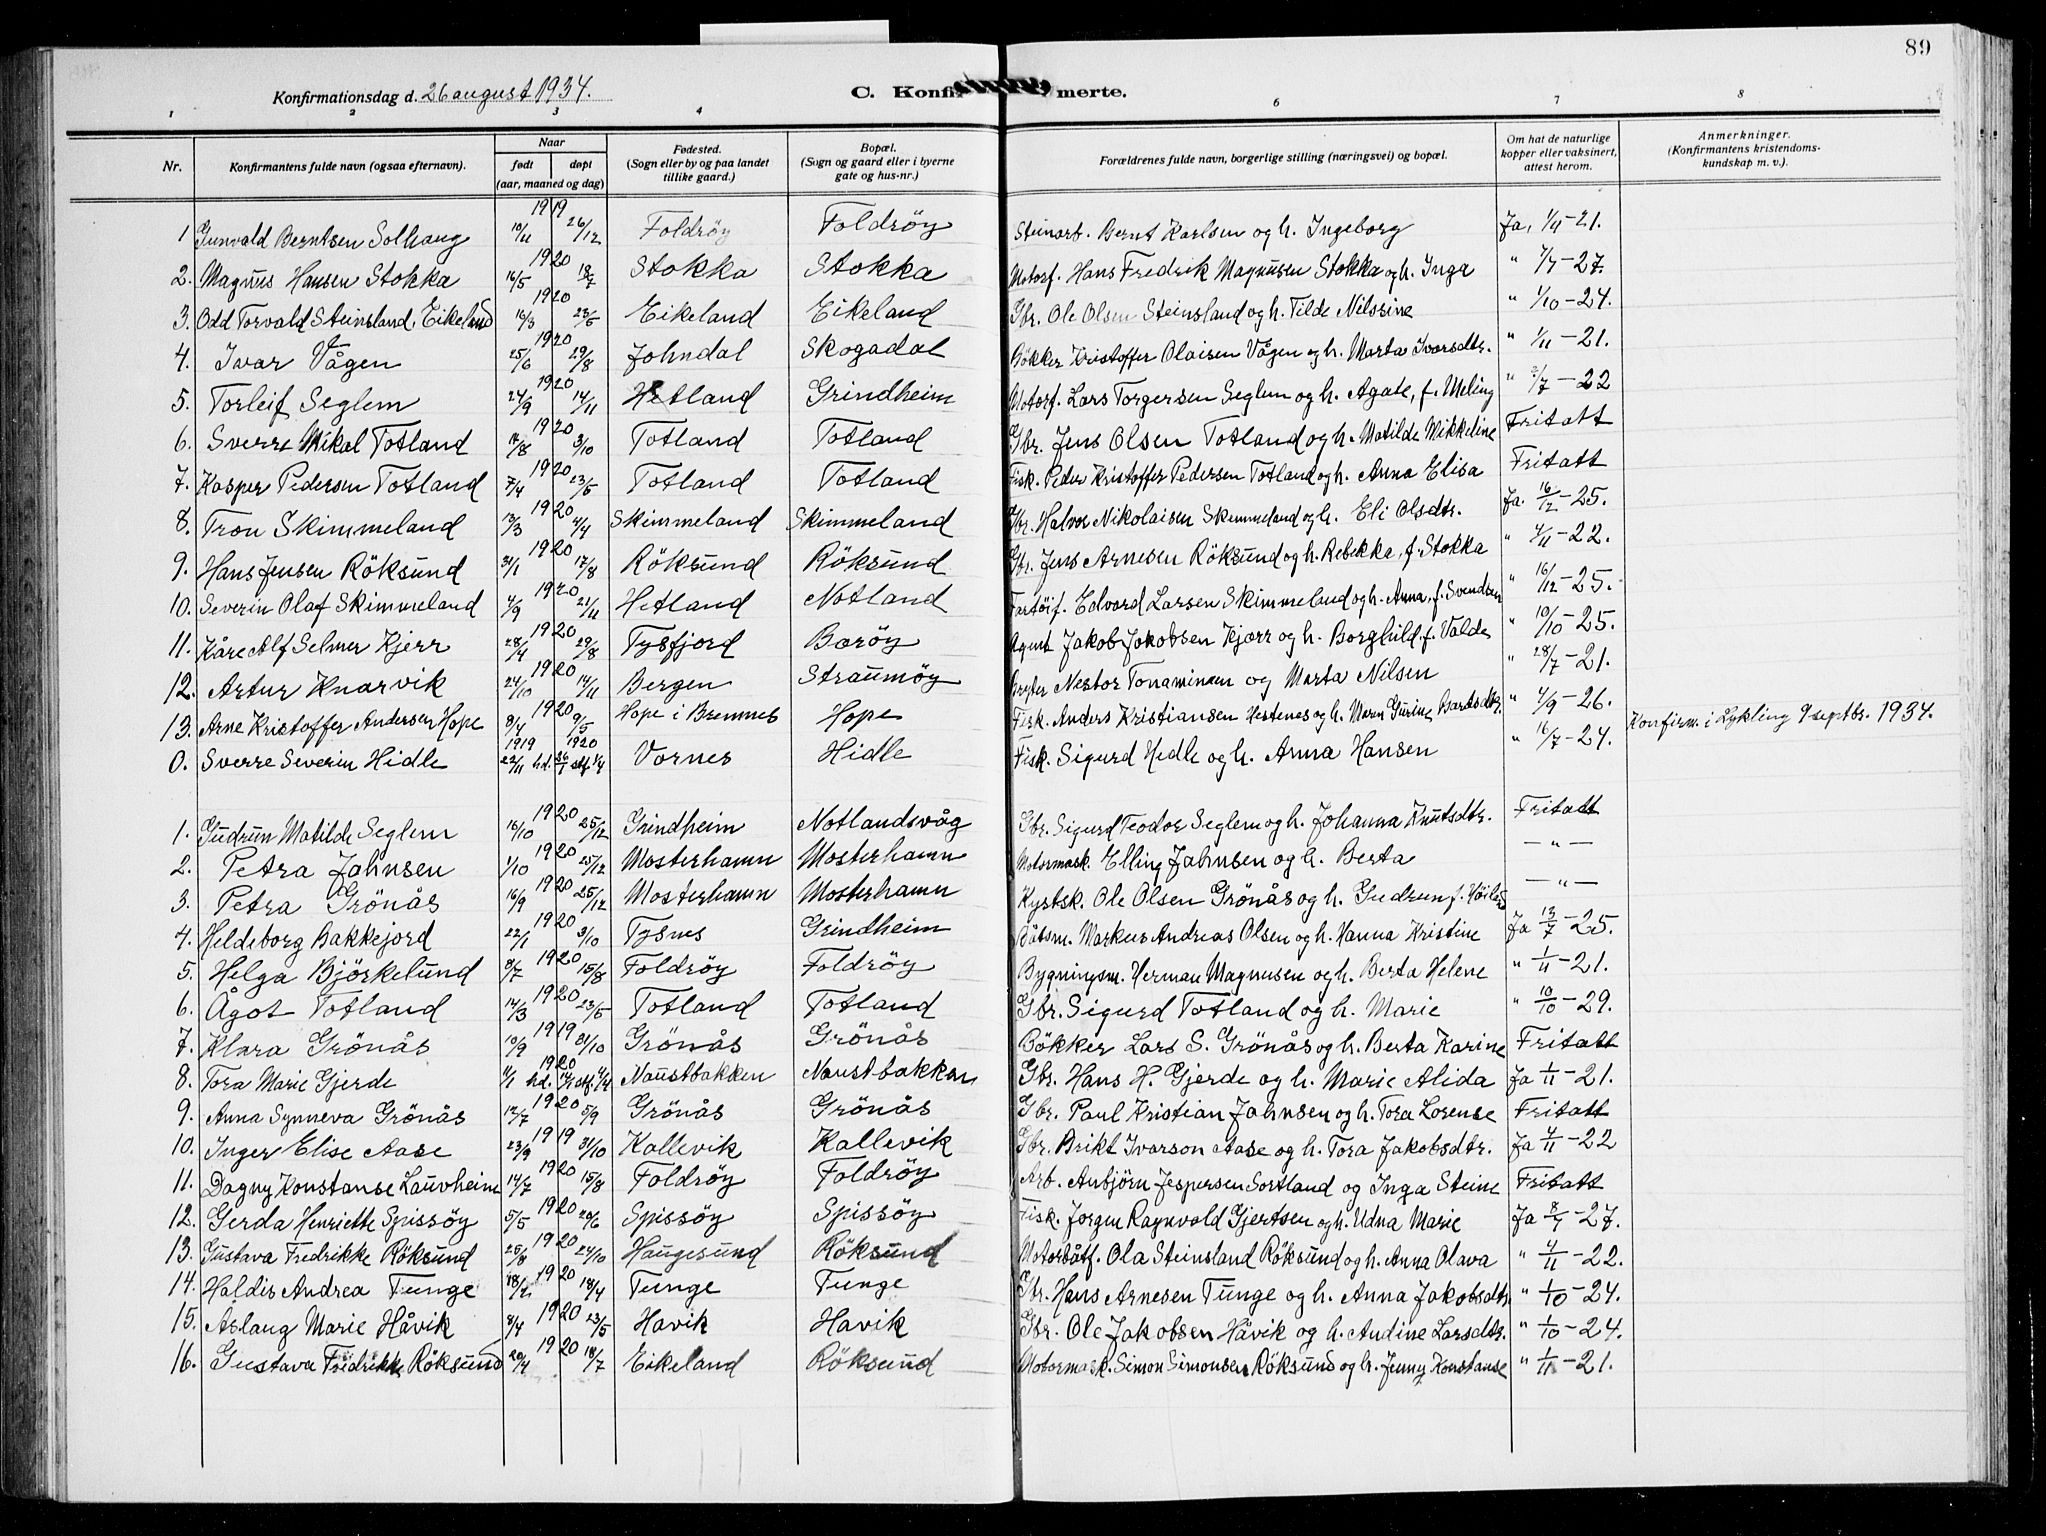 89
Konfirmationsdag d. 26 august 1934.
C. Konfir merte.
1 2 3 4 6 7 8
Nr. Konfirmantens fulde navn (ogsaa efternavn). Naar født døpt (aar, maaned og dag) Fødested. (Sogn eller by og paa landet tillike gaard.) Bopæl. (Sogn og gaard eller i byerne gate og hus-nr.) Forældrenes fulde navn, borgerlige stilling (næringsvei) og bopæl. Om hat de naturlige kopper eller vaksinert, attest herom. Anmerkninger. (Konfirmantens kristendomskundskap m. v.).
1 Gunvald Berntsen Solhaug 1919 10/11 26/12 Foldröy Foldröy Steinarb. Bernt Karlsen og h. Ingeborg Ja, 1/11-21.
2. Magnus Hansen Stokka 1920 16/5 18/7 Stokka Stokka Motorf. Hans Fredrik Magnusen Stokka og h. Inga " 7/7-27.
3. Odd Torvald Steinsland, Eikeland 1920 16/3 23/5 Eikeland Eikeland Gbr. Ole Olsen Steinsland og h. Tilde Nilssine " 1/10-24.
4. Ivar Vågen 1920 25/6 29/8 Johndal Skogadal Bökker Kristoffer Olaisen Vågen og h. Marta Ivarsdtr. " 1/11-21.
5. Torleif Seglem 1920 24/9 14/11 Hetland Grindheim Motorf. Lars Torgersen Seglem og h. Agate, f. Meling " /7-22
6. Sverre Mikal Totland 1920 17/8 3/10 Totland Totland Gbr. Jens Olsen Totland og h. Matilde Mikkeline Fritatt
7. Kasper Pedersen Totland 1920 7/4 23/5 Totland Totland Fisk. Peder Kristoffer Pedersen Totland og h. Anna Elisa Fritatt
8. Tron Skimmeland 1920 13/3 4/4 Skimmeland Skimmeland Gbr. Halvor Nikolaisen Skimmeland og h. Eli Olsdtr. Ja. 16/12-25.
9. Hans Jensen Röksund 1920 31/1 17/8 Röksund Röksund Gbr. Jens Arnesen Röksund og h. Rebekka, f. Stokka " 4/11-22.
10. Severin Olaf Skimmeland 1920 4/9 21/11 Hetland Notland Fartöif. Edvard Larsen Skimmeland og h. Anna, f. Svendsen " 16/12-25.
11. Kåre Alf Selmer Kjerr 1920 28/4 29/8 Tysfjord Baröy Agent Jakob Jakobsen Kjærr og h. Borghild f. Valde " 10/10-25.
12. Artur Knarvik 1920 24/10 14/11 Bergen Straumöy Nestor Tonaminen og Marta Nilsen " 28/7-21.
13. Arne Kristoffer Andersen Hope 1920 8/4 9/5 Hope i Bremnes Hope Fisk. Anders Kristiansen Hestenes og h. Maren Gurine Bardsdtr. " 4/9-26.
0. Sverre Severin Hidle 1919 1920 22/11 hd. 26/1 stf. 1/4 Vornes Hidle Fisk. Sigurd Hidle og h. Anna Hansen " 16/7-24. Konfirm. i Lykling 9 septbr. 1934.
1. Gudrun Matilde Seglem 1920 16/10 25/12 Grindheim Notlandsvåg Gbr. Sigurd Teodor Seglem og h. Johanna Knutsdtr. Fritatt
2. Petra Jahnsen 1920 1/10 25/12 Mosterhamn Mosterhamn Motormask. Elling Jahnsen og h. Berta — " —
3. Petra Grönås 1920 16/9 25/12 Mosterhamn Mosterhamn Kystsk. Ole Olsen Grönås og h. Gudrun f. — " —
4. Heldeborg Bakkejord 1920 22/1 3/10 Tysnes Grindheim Båtsm. Markus Andreas Olsen og h. Hanna Kristine Ja 13/7-25.
5. Helga Björkelund 1920 8/7 15/8 Foldröy Foldröy Bygningsm. Herman Magnusen og h. Berta Helene " 1/11-21.
6. Ågot Totland 1920 14/3 23/5 Totland Totland Gbr. Sigurd Totland og h. Marie " 10/10-29.
7. Klara Grönås 1919 10/9 31/10 Grönås Grönås Bökker Lars S. Grönås og h. Berta Karine Fritatt
8. Tora Marie Gjerde 1920 11/1 hd. 14/1 stf. 4/4 Naustbakken Naustbakken Gbr. Hans H. Gjerde og h. Marie Alida Ja 1/11-21.
9. Anna Synneva Grönås 1920 17/7 5/9 Grönås Grönås Gbr. Paul Kristian Jahnsen og h. Tora Lorense Fritatt
10. Inger Elise Aase 1919 23/9 31/10 Kallevik Kallevik Gbr. Brikt Ivarson Aase og h. Tora Jakobsdtr. Ja 4/11-22
11. Dagny Konstanse Lauvheim 1920 14/7 15/8 Foldröy Foldröy Arb. Anbjörn Jespersen Sortland og Inga Steine Fritatt
12. Gerda Henriette Spissöy 1920 5/5 20/6 Spissöy Spissöy Fisk. Jorgen Ragnvald Gjertsen og h. Udna Marie Ja 8/7-27.
13. Gustava Fredrikke Röksund 1920 25/8 24/10 Haugesund Röksund Motorbåtf. Ola Steinsland Röksund og h. Anna Olava " 4/11-22.
14. Haldis Andrea Tunge 1920 18/2 18/4 Tunge Tunge Gbr. Hans Arnesen Tunge og h. Anna Jakobsdtr. " 1/10-24.
15. Aslaug Marie Håvik 1920 8/4 23/5 Havik Havik Gbr. Ole Jakobsen Håvik og h. Andine Larsdtr. " 1/10-24.
16. Gustava Fredrikke Röksund 1920 20/4 18/7 Eikeland Röksund Motormask. Simon Simonsen Röksund og h. Jenny Konstanse " 1/11-21.